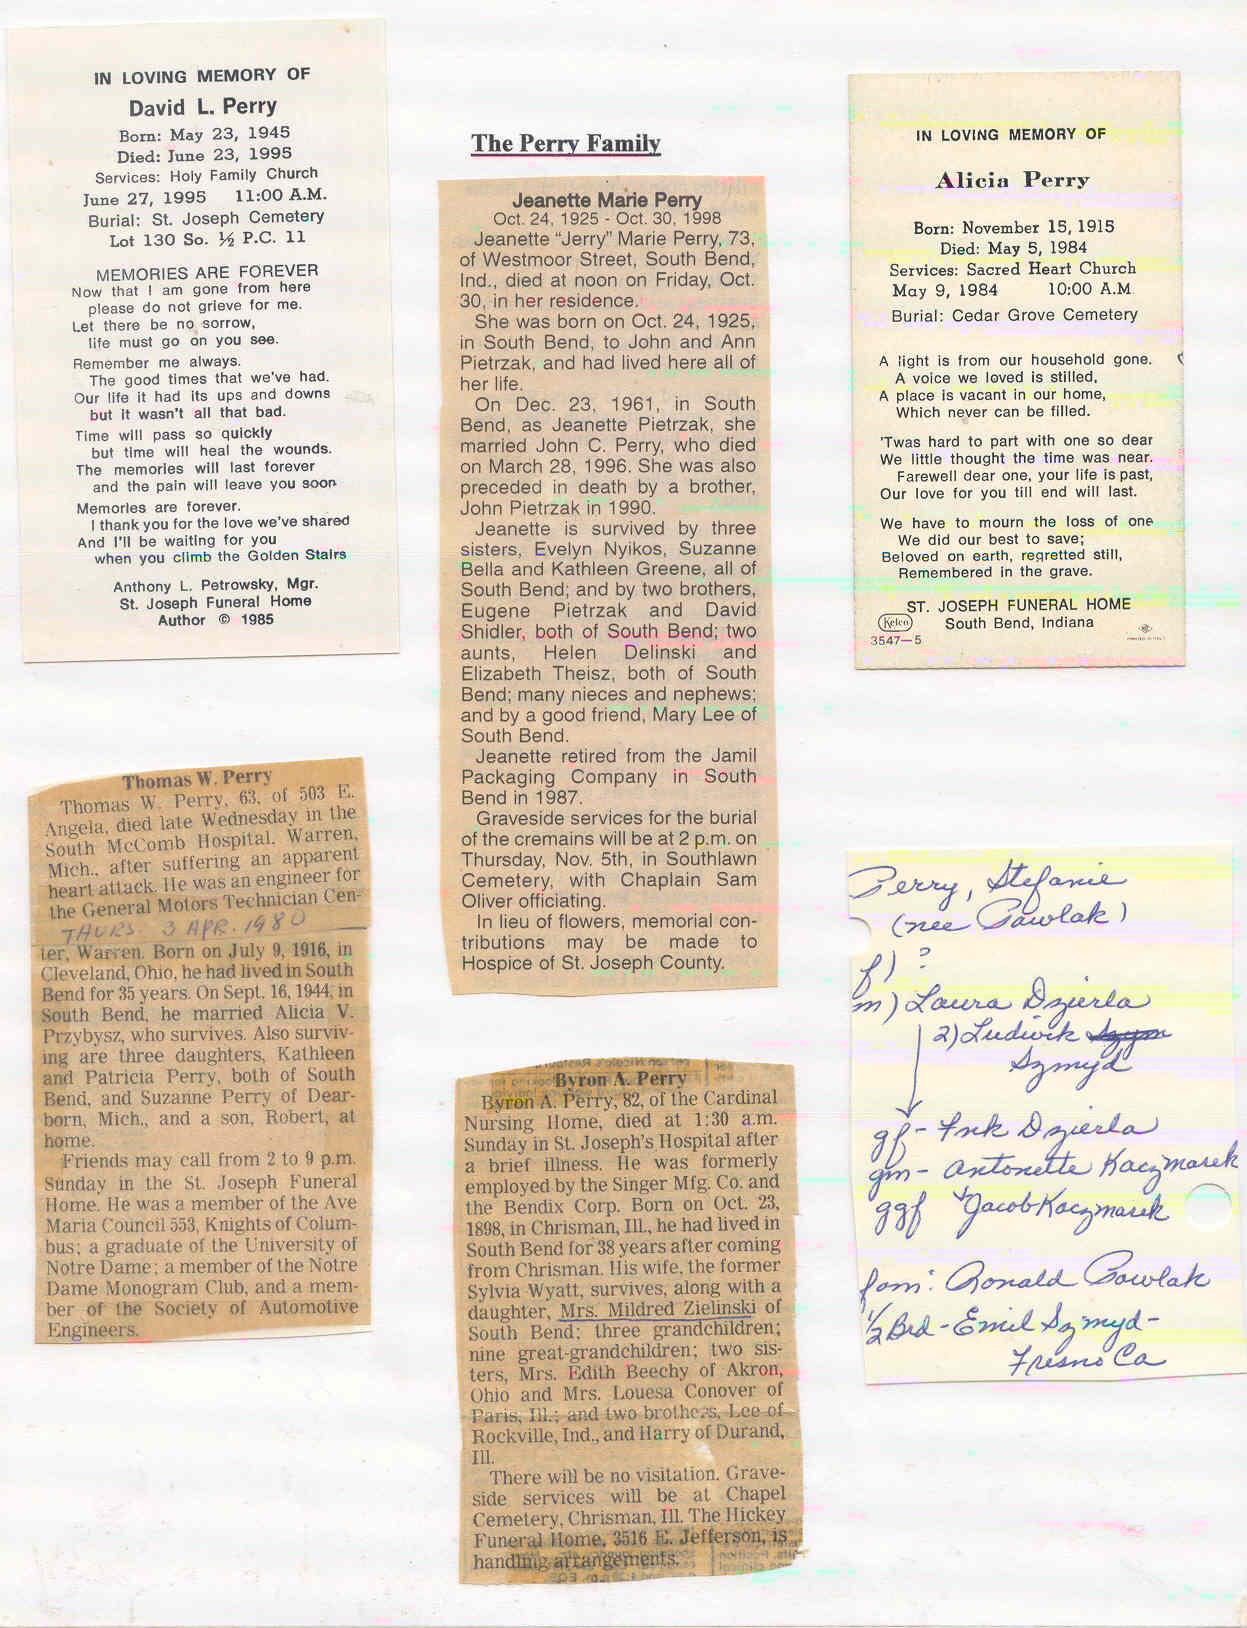 IN LOVING MEMORY OF
David L. Perry
Born: May 23, 1945
Died: June 23, 1995
Services: Holy Family Church
June 27, 1995 11:00 A.M.
Burial: St. Joseph Cemetery
Lot 130 So. ½ P.C. 11
MEMORIES ARE FOREVER
Now that I am gone from here
please do not grieve for me.
Let there be no sorrow,
life must go on you see.
Remember me always.
The good times that we've had.
Our life it had its ups and downs
but it wasn't all that bad.
Time will pass so quickly
but time will heal the wounds.
The memories will last forever
and the pain will leave you soon
Memories are forever.
I thank you for the love we've shared
And I'll be waiting for you
when you climb the Golden Stairs
Anthony L. Petrowsky, Mgr.
St. Joseph Funeral Home
Author © 1985
The Perry Family
Jeanette Marie Perry
Oct. 24, 1925 - Oct. 30, 1998
Jeanette "Jerry" Marie Perry, 73,
of Westmoor Street, South Bend,
Ind., died at noon on Friday, Oct.
30, in her residence.
She was born on Oct. 24, 1925,
in South Bend, to John and Ann
Pietrzak, and had lived here all of
her life.
On Dec. 23, 1961, in South
Bend, as Jeanette Pietrzak, she
married John C. Perry, who died
on March 28, 1996. She was also
preceded in death by a brother,
John Pietrzak in 1990.
Jeanette is survived by three
sisters, Evelyn Nyikos, Suzanne
Bella and Kathleen Greene, all of
South Bend; and by two brothers,
Eugene Pietrzak and David
Shidler, both of South Bend; two
aunts, Helen Delinski and
Elizabeth Theisz, both of South
Bend; many nieces and nephews;
and by a good friend, Mary Lee of
South Bend.
Jeanette retired from the Jamil
Packaging Company in South
Bend in 1987.
Graveside services for the burial
of the cremains will be at 2 p.m. on
Thursday, Nov. 5th, in Southlawn
Cemetery, with Chaplain Sam
Oliver officiating.
In lieu of flowers, memorial con-
tributions may be made to
Hospice of St. Joseph County.
IN LOVING MEMORY OF
Alicia Perry
Born: November 15, 1915
Died: May 5, 1984
Services: Sacred Heart Church
May 9, 1984 10:00 A.M
Burial: Cedar Grove Cemetery
A light is from our household gone.
A voice we loved is stilled,
A place is vacant in our home,
Which never can be filled.
'Twas hard to part with one so dear
We little thought the time was near.
Farewell dear one, your life is past,
Our love for you till end will last.
We have to mourn the loss of one
We did our best to save;
Beloved on earth, regretted still,
Remembered in the grave.
ST. JOSEPH FUNERAL HOME
South Bend, Indiana
Kelco
3547—5
Thomas W. Perry
Thomas W. Perry, 63, of 503 E.
Angela, died late Wednesday in the
South McComb Hospital, Warren,
Mich., after suffering an apparent
heart attack. He was an engineer for
the General Motors Technician Cen-
THURS. 3 APR. 1980
ter, Warren. Born on July 9, 1916, in
Cleveland, Ohio, he had lived in South
Bend for 35 years. On Sept. 16, 1944, in
South Bend, he married Alicia V.
Przybysz, who survives. Also surviv-
ing are three daughters, Kathleen
and Patricia Perry, both of South
Bend, and Suzanne Perry of Dear-
born, Mich., and a son, Robert, at
home.
Friends may call from 2 to 9 p.m.
Sunday in the St. Joseph Funeral
Home. He was a member of the Ave
Maria Council 553, Knights of Colum-
bus; a graduate of the University of
Notre Dame; a member of the Notre
Dame Monogram Club, and a mem-
ber of the Society of Automotive
Engineers.
Byron A. Perry
Byron A. Perry, 82, of the Cardinal
Nursing Home, died at 1:30 a.m.
Sunday in St. Joseph's Hospital after
a brief illness. He was formerly
employed by the Singer Mfg. Co. and
the Bendix Corp. Born on Oct. 23,
1898, in Chrisman, Ill., he had lived in
South Bend for 38 years after coming
from Chrisman. His wife, the former
Sylvia Wyatt, survives, along with a
daughter, Mrs. Mildred Zielinski of
South Bend; three grandchildren;
nine great-grandchildren; two sis-
ters, Mrs. Edith Beechy of Akron,
Ohio and Mrs. Louesa Conover of
Paris, Ill.; and two brothers, Lee of
Rockville, Ind., and Harry of Durand,
Ill.
There will be no visitation. Grave-
side services will be at Chapel
Cemetery, Chrisman, Ill. The Hickey
Funeral Home, 3516 E. Jefferson, is
handling arrangements.
Perry, Stefanie
(nee Pawlak)
f) ?
m) Laura Dzierla
2) Ludwik
Szmyd
gf - Frk Dzierla
gm - Antonette Kaczmarek
ggf Jacob Kaczmarek
fam: Ronald Pawlak
1/2 Brd - Emil Szmyd -
Fresno Ca